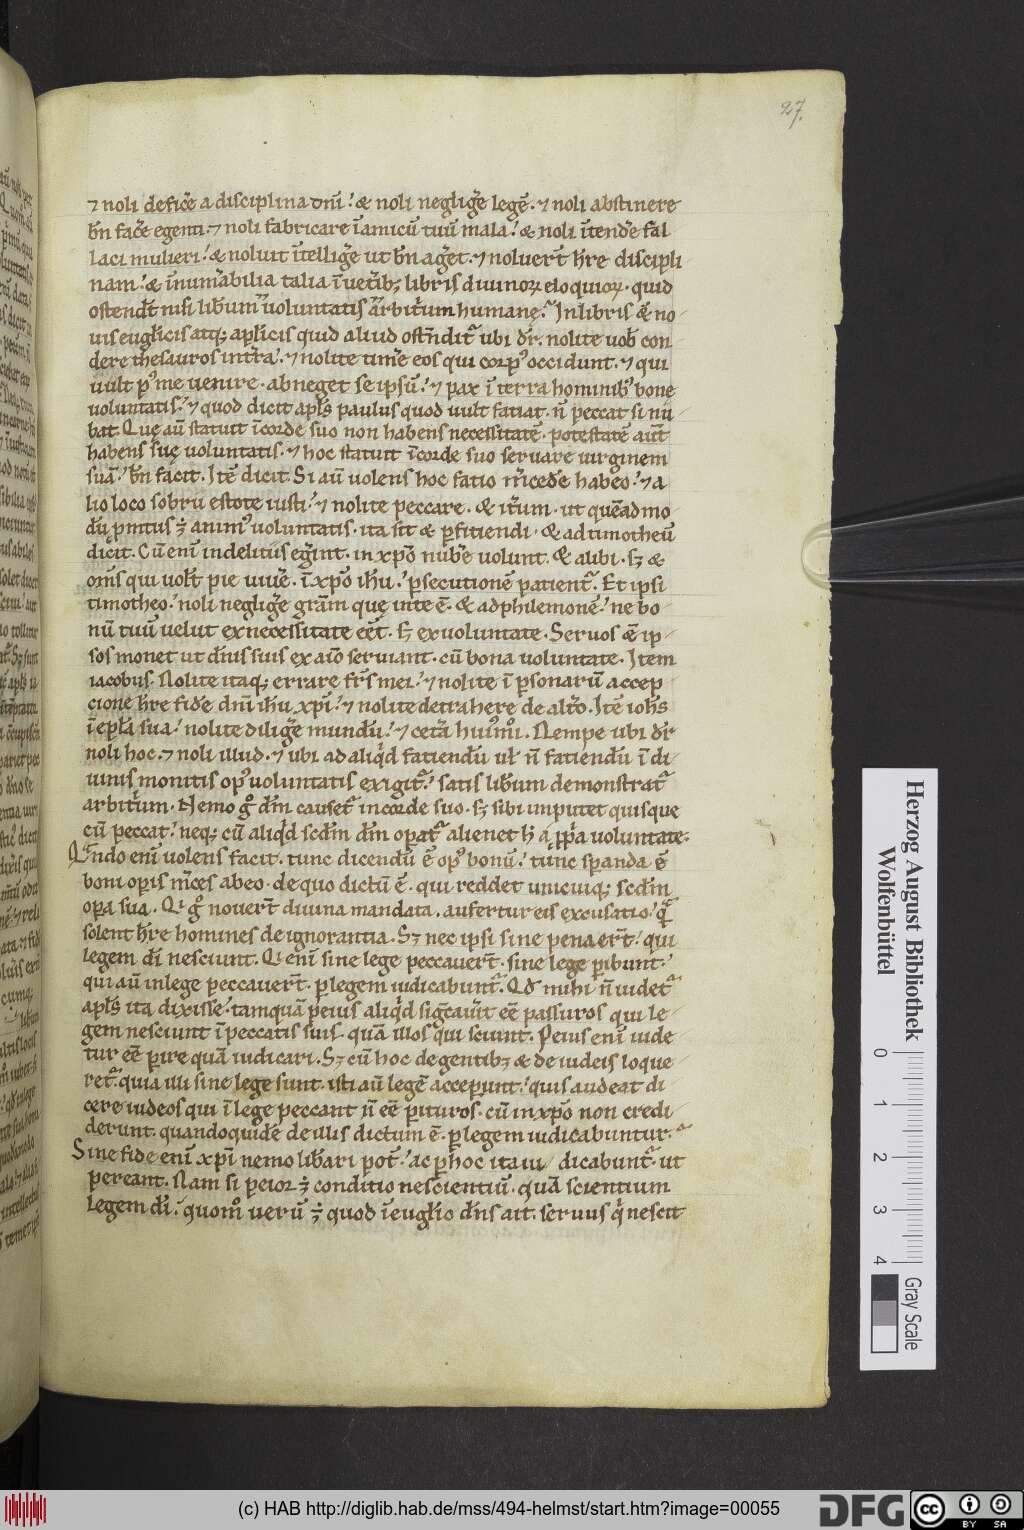 27.
⁊ noli defic̄e a disciplina dn̄i. & noli negliḡe legē. ⁊ noli abstinere
bn̄ fac̄e egenti. ⁊ noli fabricare ī amicū tuū mala. & noli ītend̄e fal
laci mulieri. & noluit ītelliḡe ut bn̄ aḡet. ⁊ noluer̄t h̄re discipli
nam. & īnum̄abilia talia ī uet̄ibꝫ libris diuinoꝝ eloquioꝝ. quid
ostendūt nisi lib̄um uoluntatis arbit̄um humanę. In libris &̄ no
uis euglicis atqꝫ aplicis quid aliud ostn̄dit̄ ubi dr̄. nolite uob̄ con
dere thesauros int̄ra. ⁊ nolite tim̄e eos qui corpꝰ occidunt. ⁊ qui
uult pꝰ me uenire. abneget se ipsū. ⁊ pax ī terra hominibꝰ bone
uoluntatis. ⁊ quod dicit apl̄s paulus quod uult fatiat. n̄ peccat si nu
bat. Quę aū statuit ī corde suo non habens necessitatē. potestatē aūt
habens suę uoluntatis. ⁊ hoc statuit ī corde suo seruare uirginem
suā. bn̄ facit. Itē dicit. Si aū uolens hoc fatio m̄cedē habeo. ⁊ a
lio loco sobrii estote iusti. ⁊ nolite peccare. & it̄um. ut quēadmo
dū promtus ꝫ̄ animꝰ uoluntatis. ita sit & p̄fitiendi. & ad timotheū
dicit. Cū enī indelitiis eḡint. in xp̄o nub̄e uolunt. & alibi. sꝫ &
om̄s qui uolt̄ pie uiuē. ī xp̄o ih̄u. p̄secutionē patient̄. Et ipsi
timotheo. noli negliḡe grām quę in te ē. & ad philemonē. ne bo
nū tuū uelut ex necessitate eēt. sꝫ ex uoluntate. Seruos &̄ ip
sos monet ut dn̄is suis ex aīo seruiant. cū bona uoluntate. Item
iacobus. Nolite itaqꝫ errare fr̄s mei. ⁊ nolite ī personarū accep
cione h̄re fidē dn̄i ih̄u xp̄i. ⁊ nolite detrahere de alt̄o. Itē ioh̄s
ī epl̄a sua. nolite diliḡe mundū. ⁊ cet̄a huiꝰmoi. Nempe ubi dr̄
noli hoc. ⁊ noli illud. ⁊ ubi ad aliqd fatiendū ul̄ n̄ fatiendū ī di
uinis monitis opꝰ uoluntatis exigit̄. satis lib̄um demonstrat̄
arbit̄um. Nemo gͦ dm̄ causet̄ in corde suo. sꝫ sibi imputet quisque
cū peccat. neqꝫ cū aliqd scdm̄ dm̄ opat̄ alienet h̄ a p̄p̄a uoluntate.
Qn̄do enī uolens facit. tunc dicendū ē opꝰ bonū. tunc speranda ē
boni opis m̄ces abeo. de quo dictū ē. qui reddet unicuiqꝫ scdm̄
opa sua. Qi gͦ nouer̄t diuina mandata. aufertur eis excusatio. q̄
solent h̄re homines de ignorantia. Sꝫ nec ipsi sine pena er̄t. qui
legem di nesciunt. Qi enī sine lege peccauer̄t. sine lege pibunt.
qui aū in lege peccauer̄t. p legem iudicabunt̄. Qd mihi n̄ uidet̄
apl̄s ita dixisse. tamquā peius aliqd sigcauit eē passuros qui le
gem nesciunt ī peccatis suis. quā illos qui sciunt. Peius enī uide
tur eē pire quā iudicari. Sꝫ cū hoc de gentibꝫ & de iudeis loque
ret̄. quia illi sine lege sunt. isti aū legē acceperunt. quis audeat di
cere iudeos qui ī lege peccant n̄ eē pituros. cū in xp̄o non credi
derunt. quandoquidē de illis dictum ē. p legem iudicabuntur.
Sine fide enī xp̄i nemo lib̄ari pot̄. ac p hoc ita iu dicabunt̄. ut
pereant. Nam si peior ꝫ̄ conditio nescientiū. quā scientium
legem di. quom̄ uerū ꝫ̄ quod ī euglio dn̄s ait. seruus q̄ nescit
Herzog August Bibliothek
Wolfenbüttel
0 1 2 3 4
Gray Scale
(c) HAB http://diglib.hab.de/mss/494-helmst/start.htm?image=00055
DFG
cc BY SA